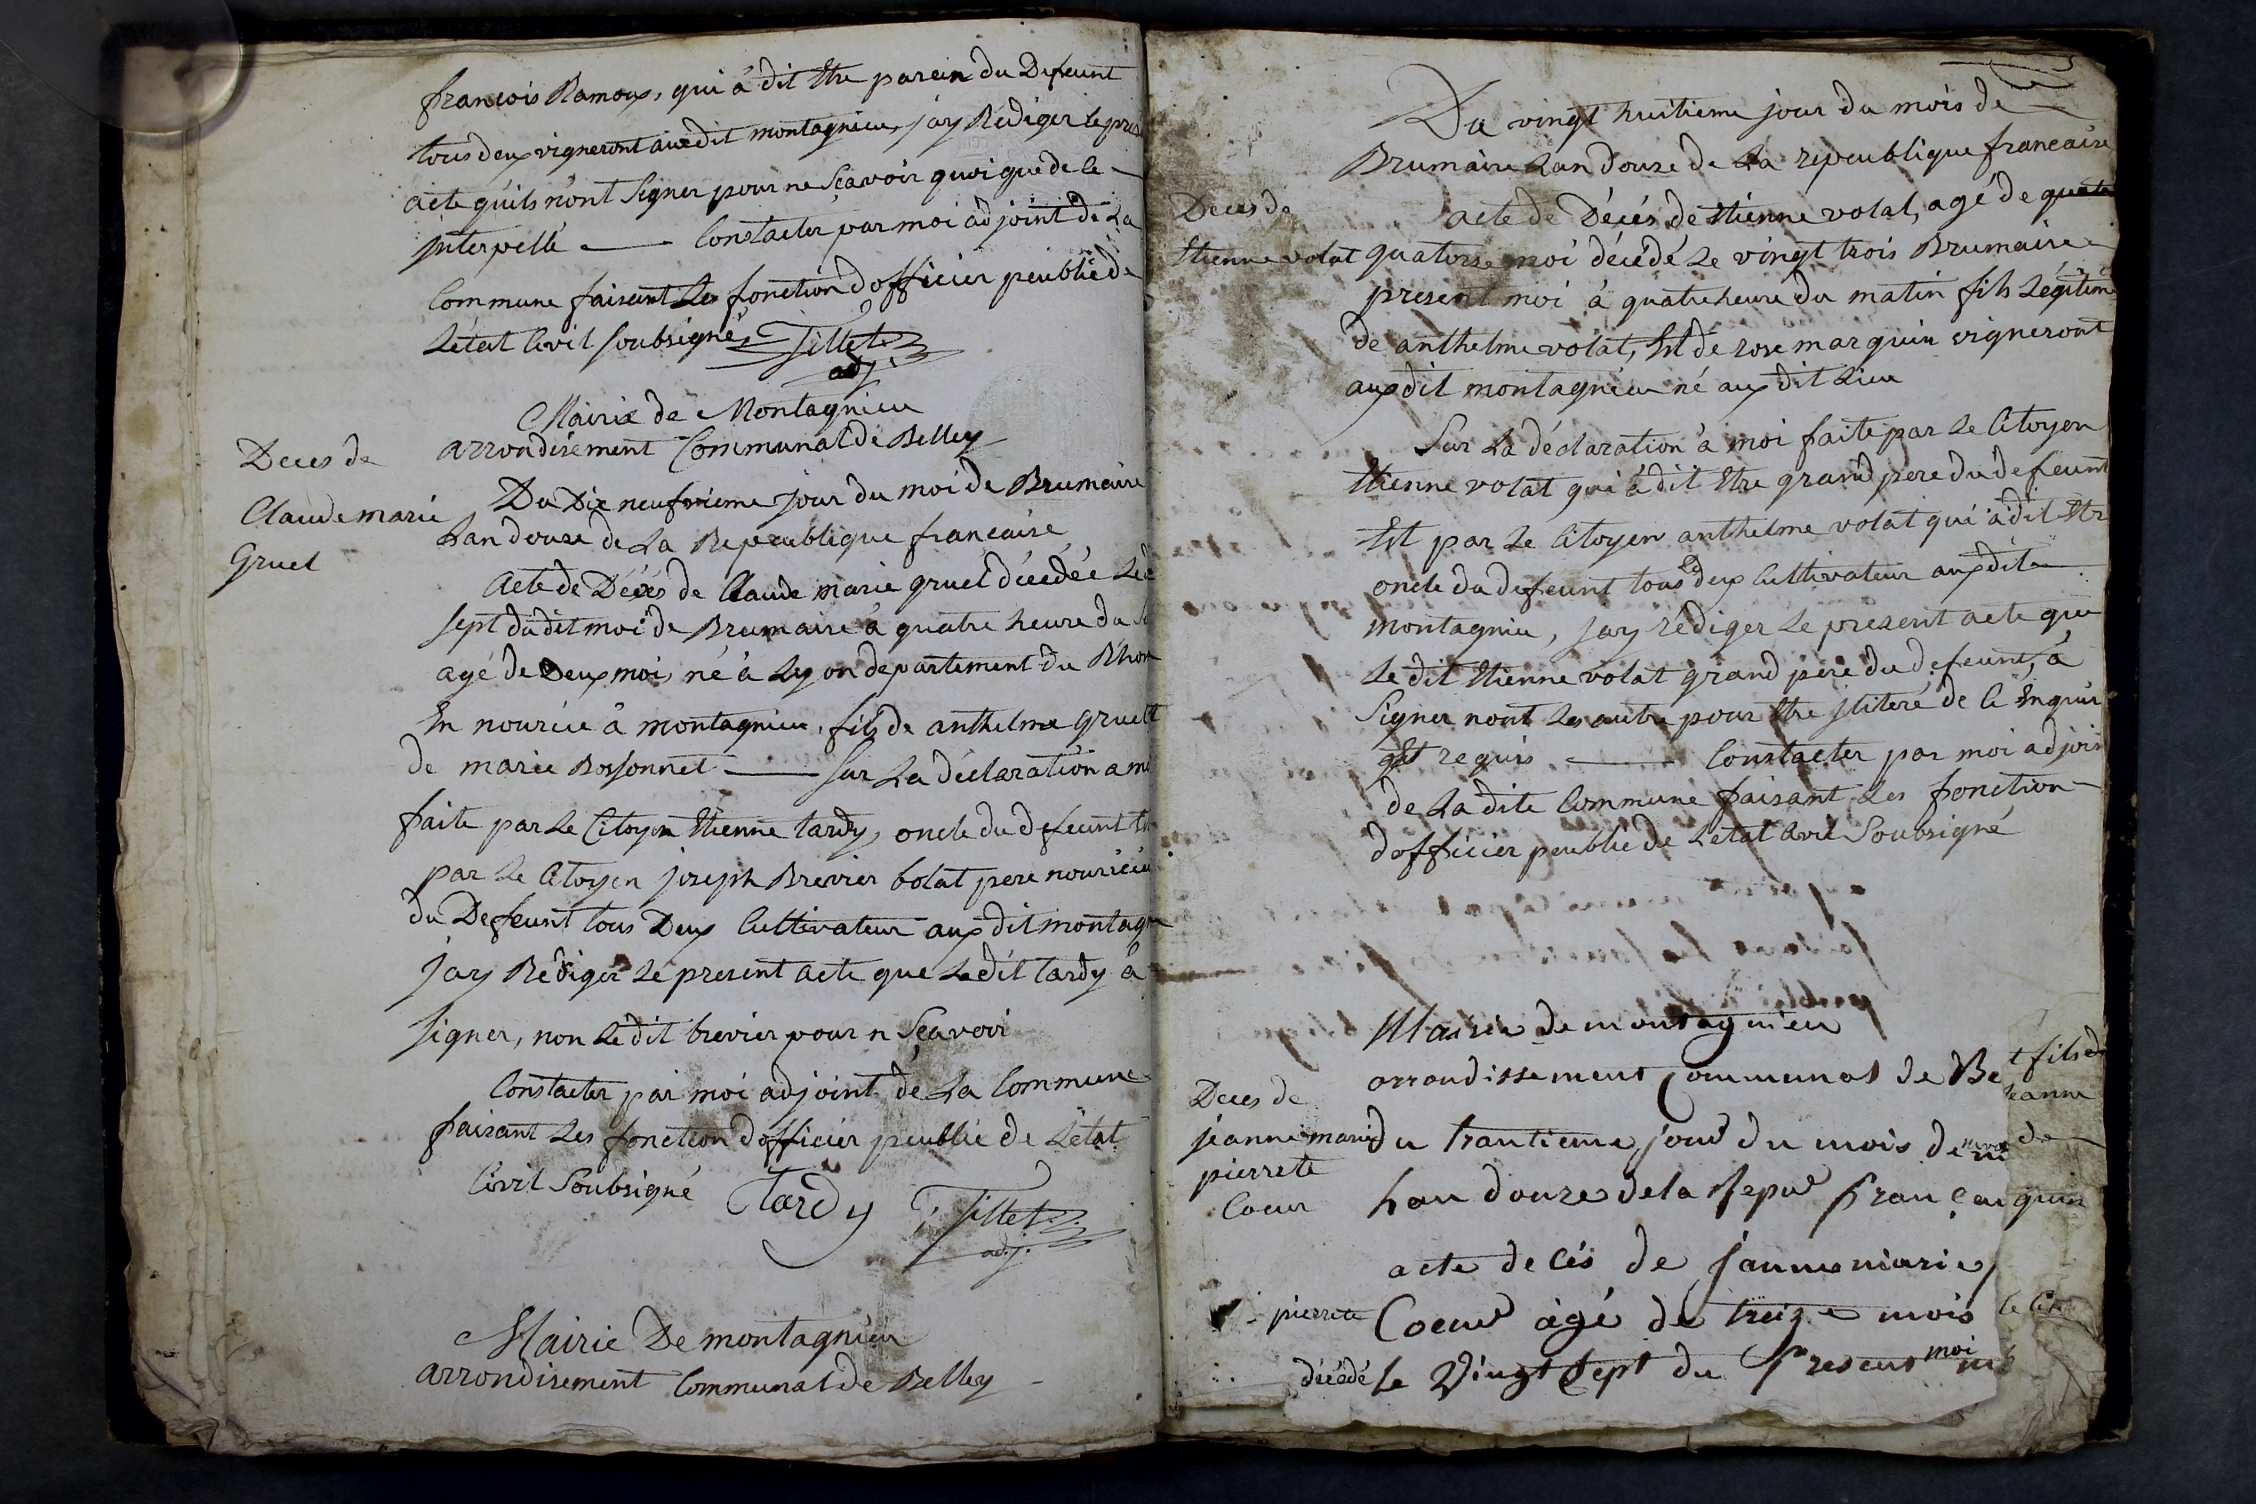 francois Ramoux, qui à dit Etre parein du Defeunt
tous deux vigneront auxdit montagnieu, jay Rédiger le pres
acte quils nont Signer pour ne Scavoir quoi que de le
jnterpellé — Constacter par moi adjoint de La
Commune faisant Les fonction dofficier peublie de
Létat Civil soubsigné Tillet
adj.
Mairie de Montagnieu
arrondisement Communal de Belley
Deces de
Claude marie
Gruel
Du Dix neufvieme jour du moi de Brumaire
Lan douze de La Republique francaise
Acte de Décés de Claude marie gruel décédée Le
sept dudit moi de Brumaire à quatre heure du
agé de Deux moi, né à Lyon departement du Rhon
En nourice à montagnieu, fils de anthelme Gruel Et
de marie Bossonnet — Sur La déclaration a m
faite par Le Citoyen Etienne tardy, oncle du defeunt Et
par Le Citoyen joseph Brevier bolat pere nouricier
du Defeunt tous Deux Cultivateur auxdit montagn
jay Rédiger Le present acte que Ledit tardy à
signer, non Ledit brevier pour n Scavoir
Constacter par moi adjoint de La Commune
faisant Les fonction dofficier peublie de Létat
Civil Soubsigné Tardy Tillet
adj.
Mairie De montagnieu
arrondisement Communal de Belley
Du vingt huitieme jour du mois de
Brumaire Lan Douze de La republique francaise
Deces de
Etienne volat
acte de Décés de Etienne volat, agé de
quatorze moi décédé Le vingt trois Brumaire
present moi à quatre heure du matin fils Légitim
de anthelme volat, Et de rose marguin vigneront
auxdit montagnieu né auxdit Lieu
Sur La déclaration à moi faite par Le Citoyen
Etienne volat qui à dit Etre grand pere du defeunt
Et par Le Citoyen anthelme volat qui à dit Etr
oncle du defeunt tous deux Cultivateur auxdit
montagnieu, jay rédiger Le present acte que
Le dit Etienne volat grand pere du defeunt, à
Signer nont Les autre pour Etre jliteré de ce Enquis
Et requis — Constacter par moi adjoin
de La dite Commune faisant Les fonction
dofficier peublie de Letat Civil Soubsigné
Mairie de montagnieu
arrondissement Communal de Be
Deces de
jeanne marie
pierrete
Coeur
du trantieme jour du mois de
Lan douze de la Repub francai
acte de Cés de jeanne marie
pierrete Coeur àgé de treize mois
décédé le Vingt Sept du Present moi
t fils de
jeanne
de
quin
le Cit